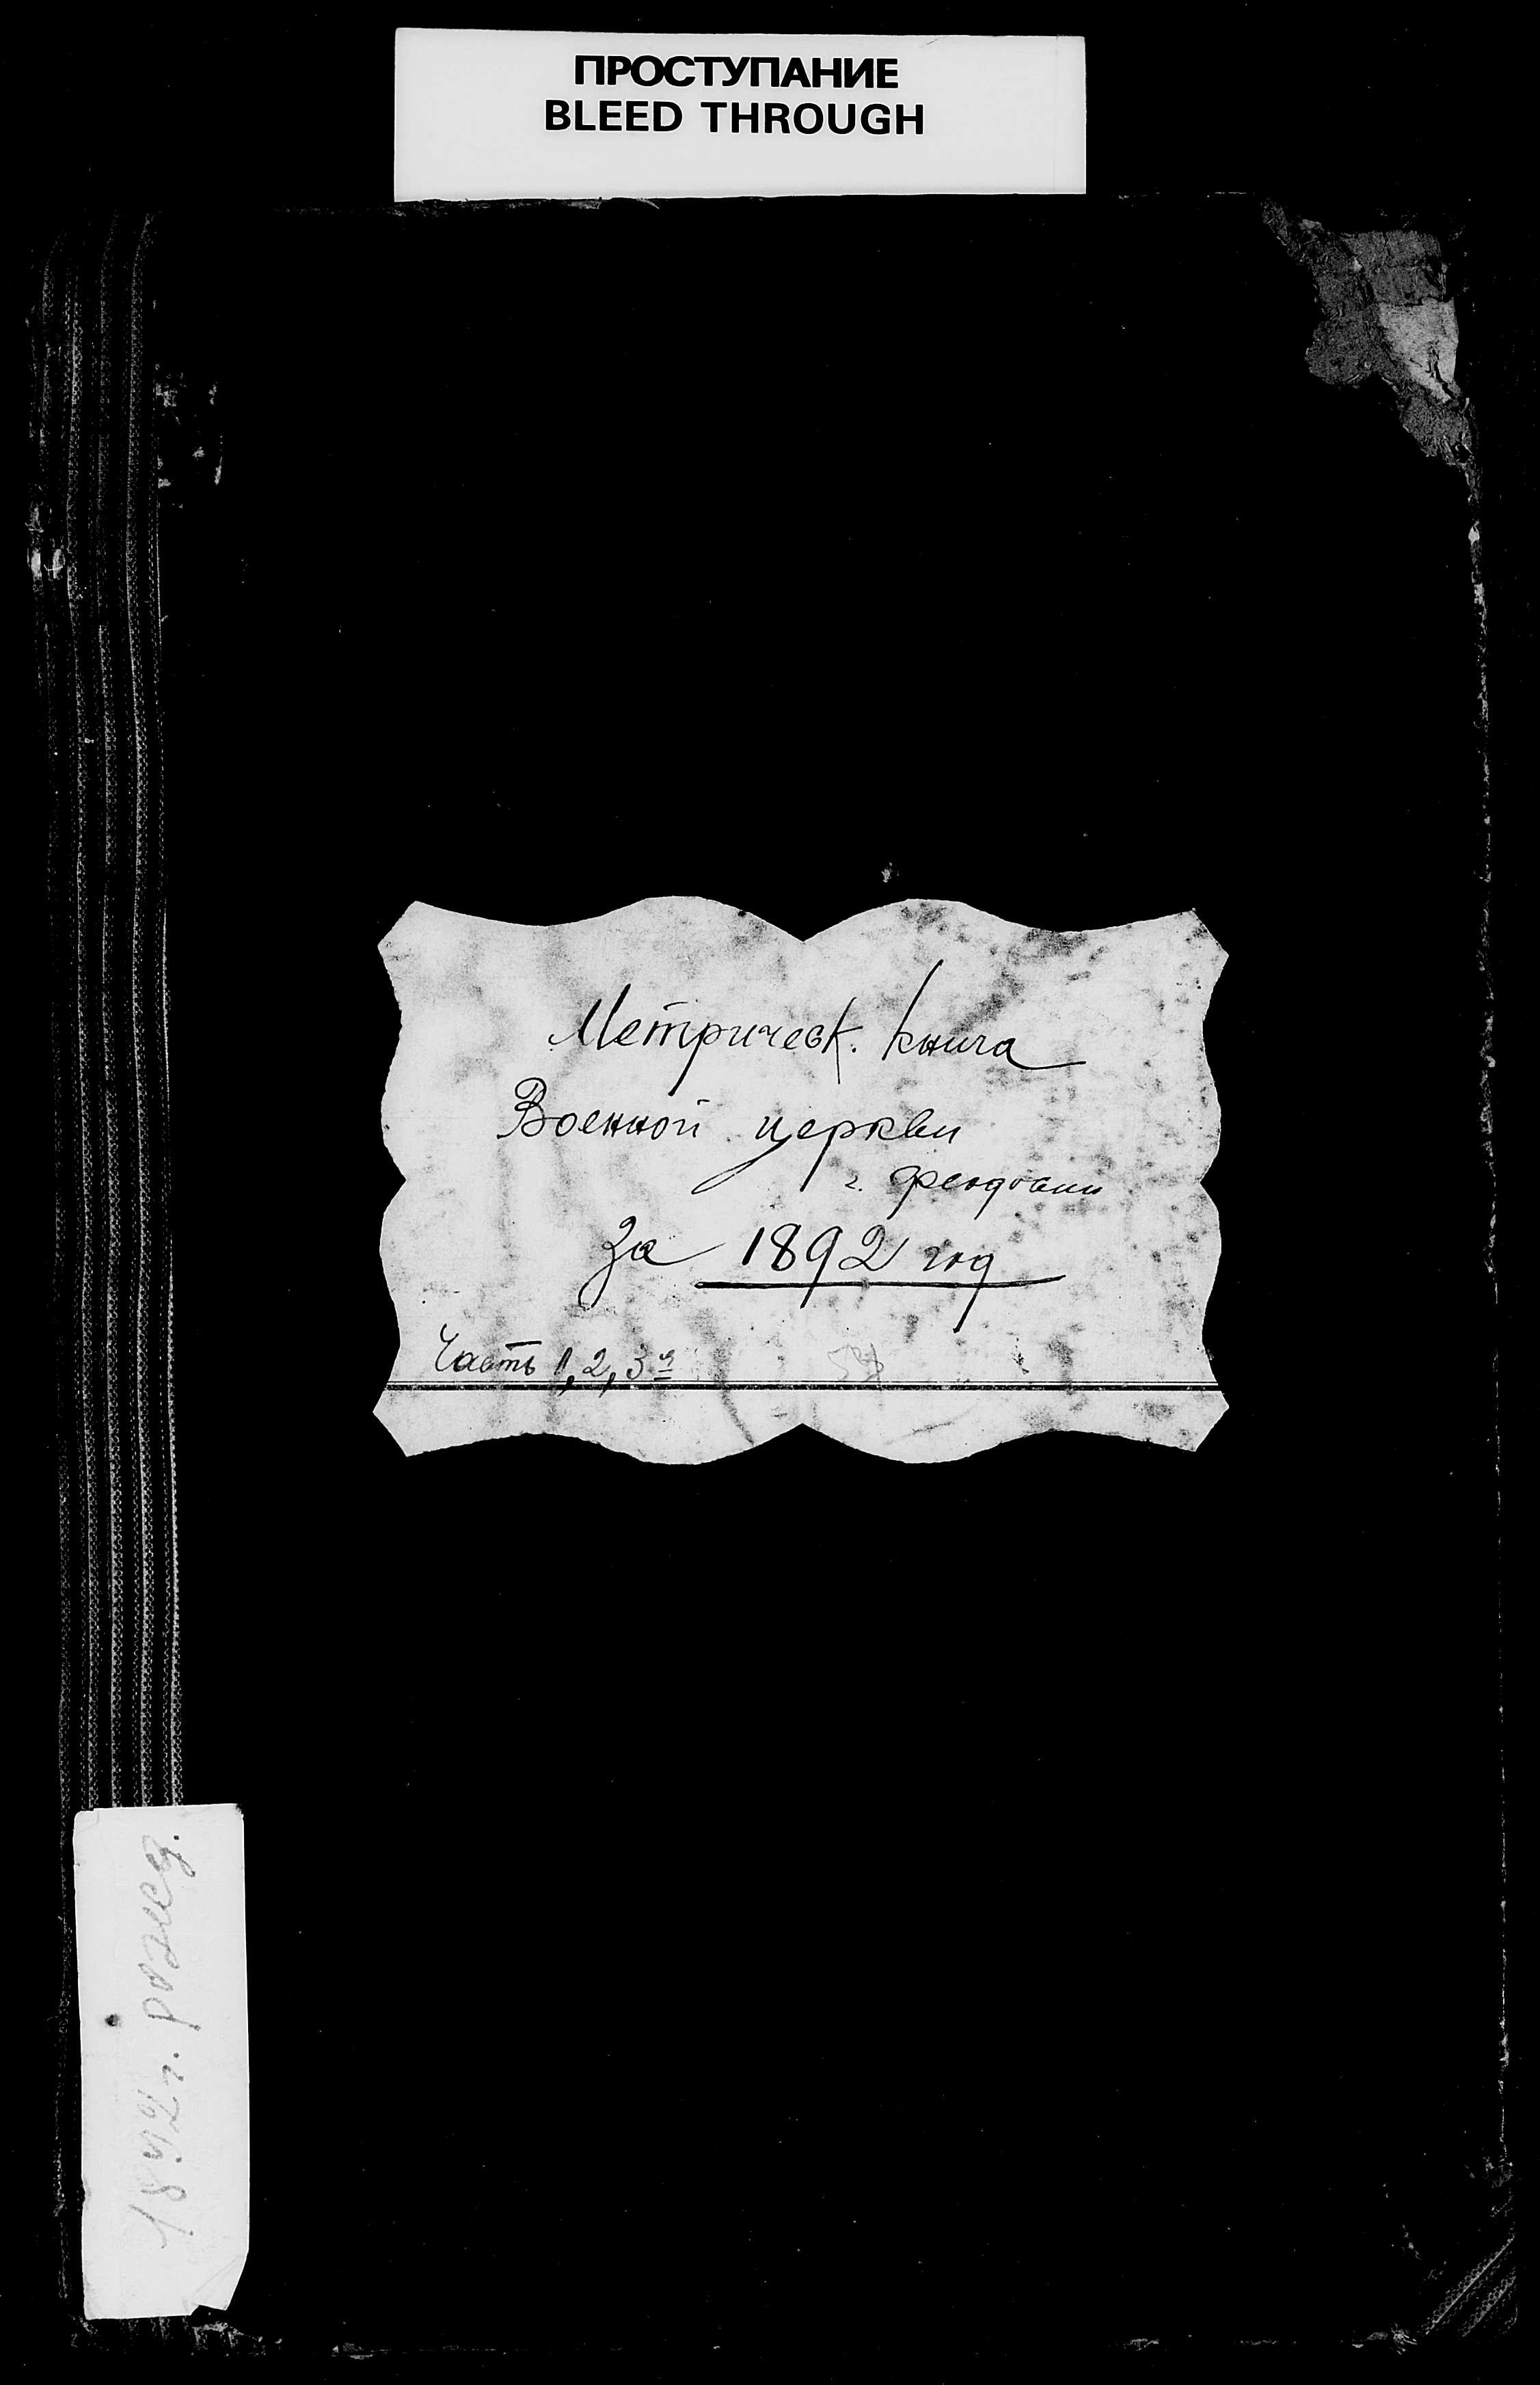 ПРОСТУПАНИЕ
BLEED THROUGH
Метрическ. книга
Военной церкви
г. Феодосии
за 1892 год
Часть 1, 2, 3я
1892 г. рожд.